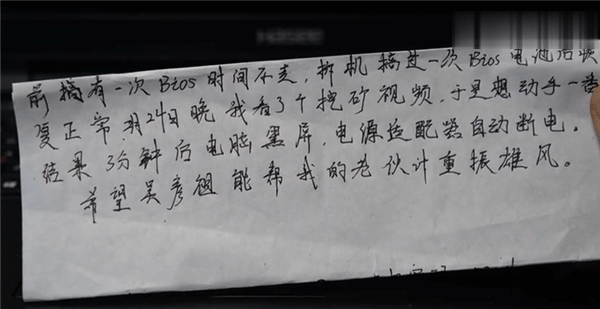 前搞有一次Bios时间不走,拆机搞过一次Bios电池后恢
复正常。羽24日晚我看了个挖矿视频,于是想动手一番
结果3分钟后电脑黑屏,电源适配器自动断电。
希望吴彦祖能帮我的老伙计重振雄风。